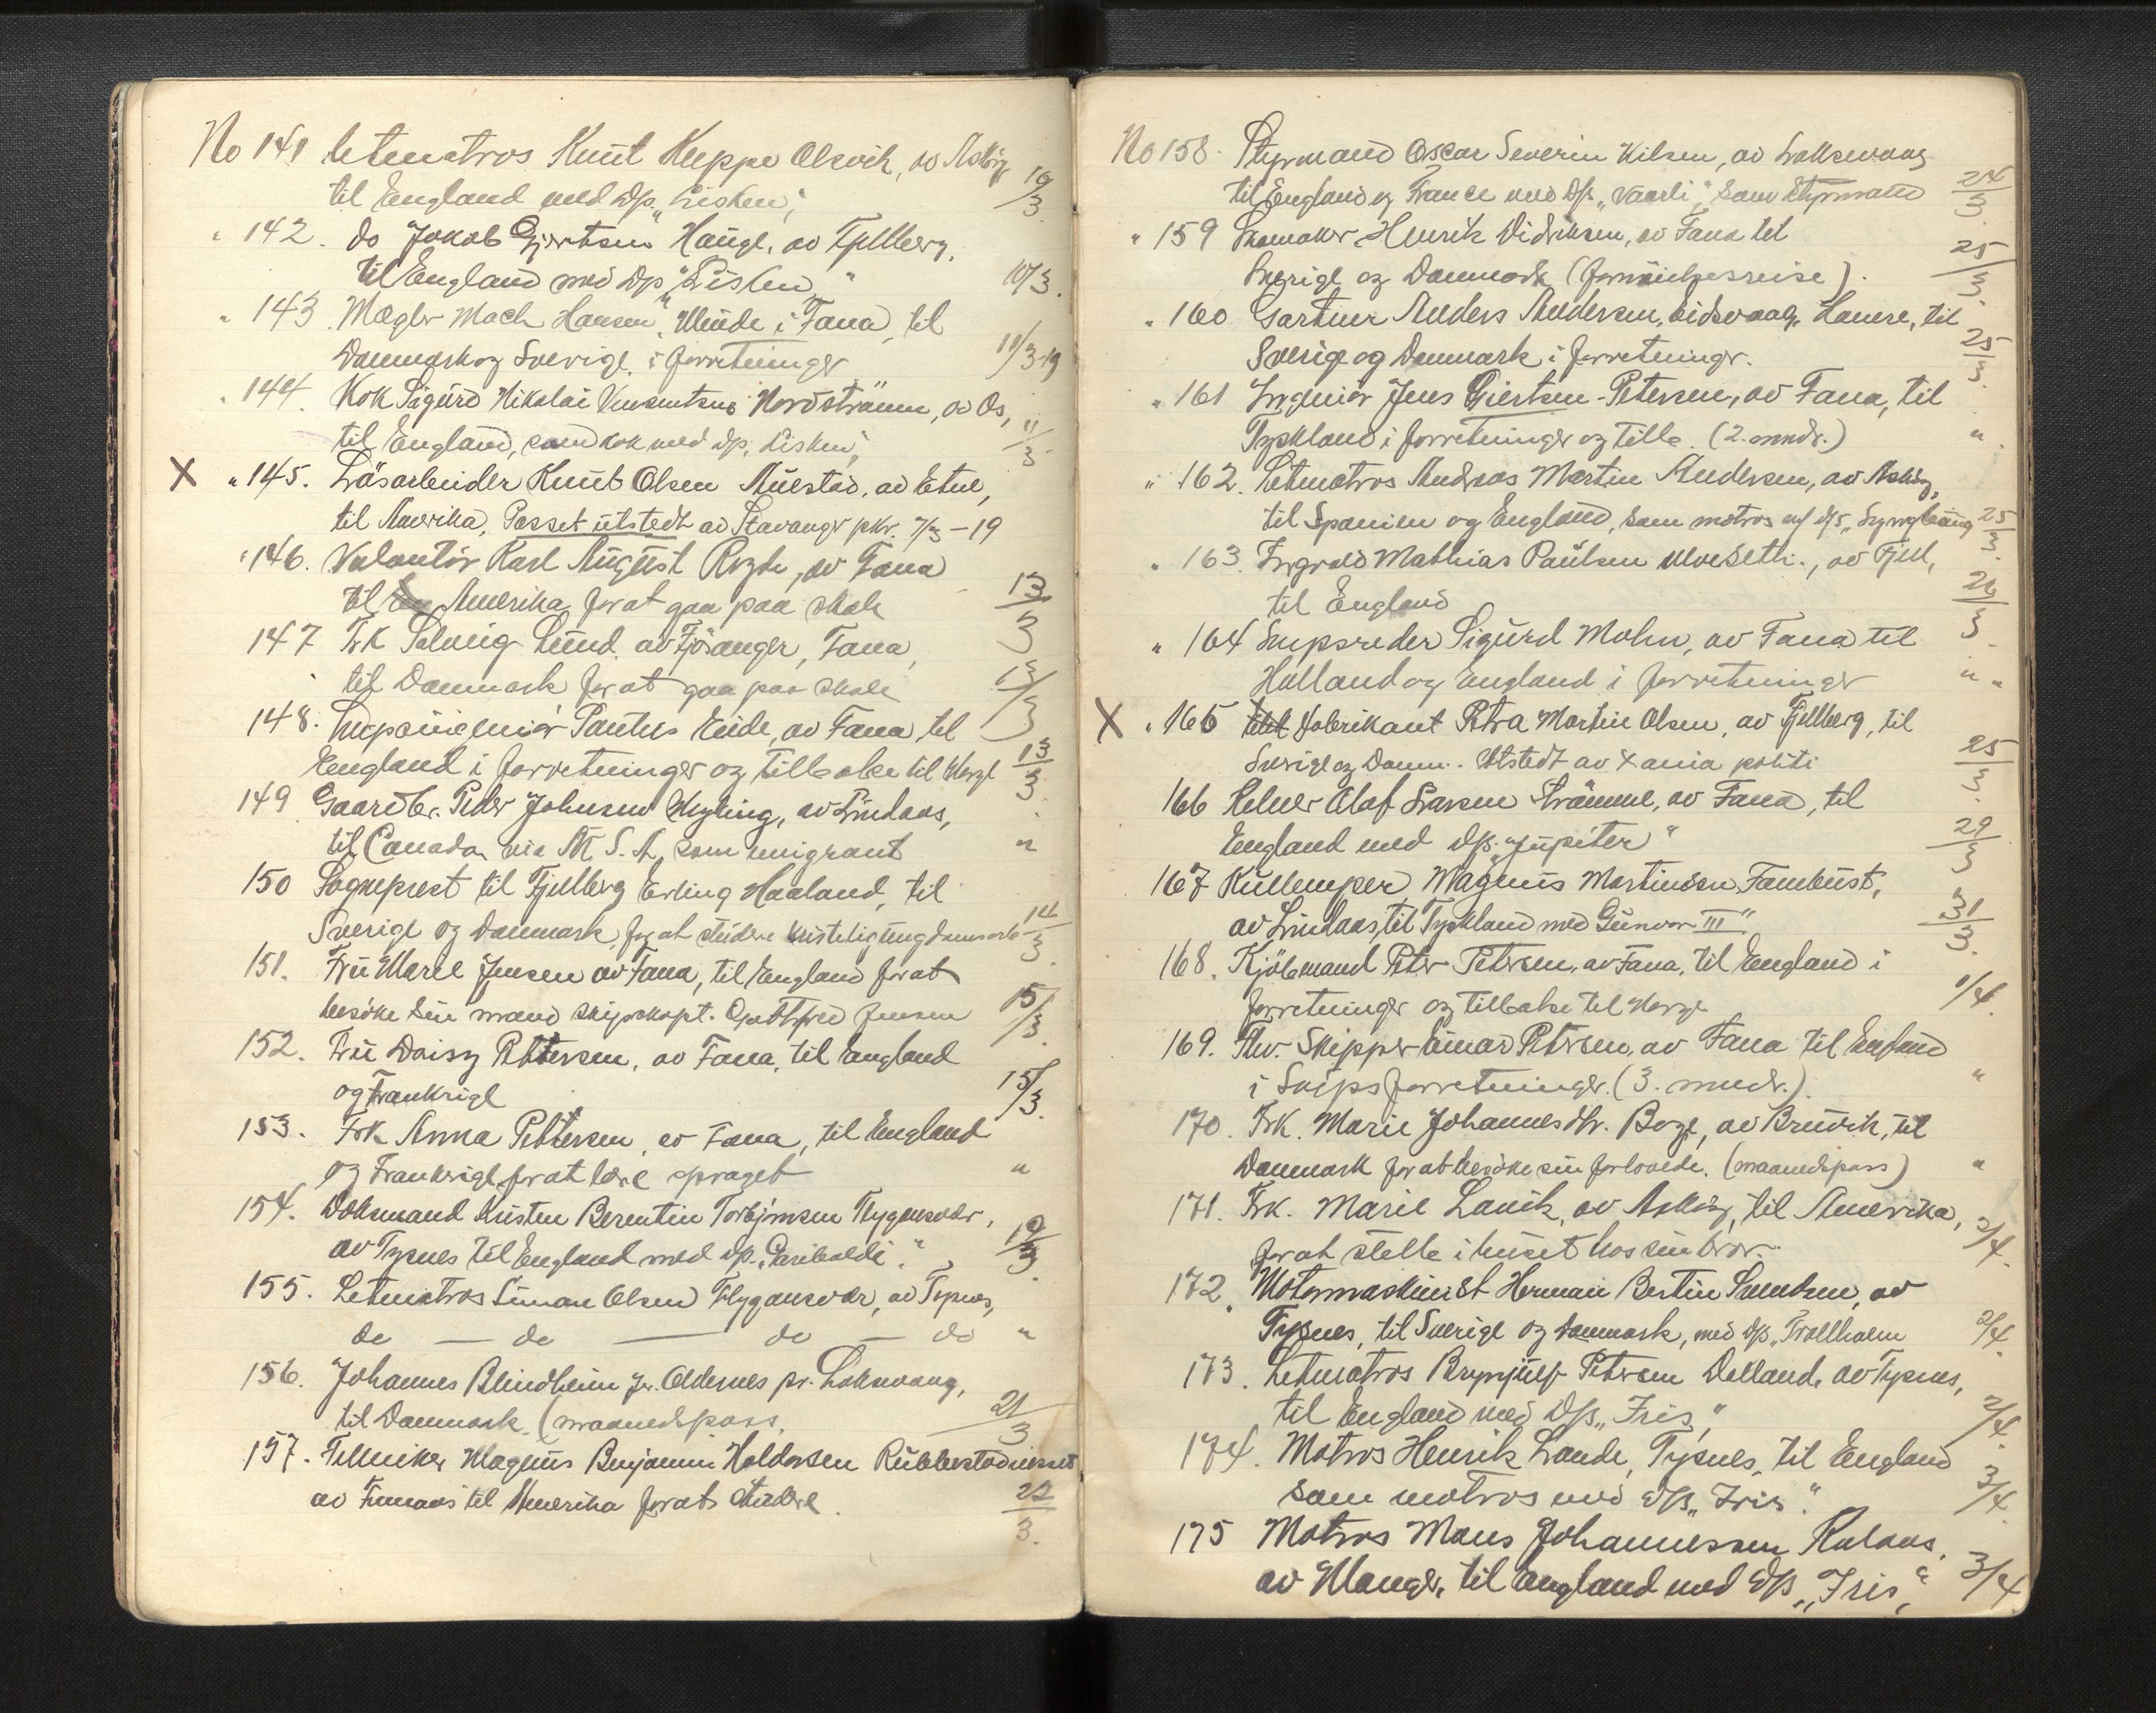 No 141 Letmatros Knut Heppe Olsvik, av Askøy 10/3
til England med Dp. "Lisken",
" 142. do Jokob Gjertsen Hauge, av Fjellberg,
til England med Dp "Lisken" 10/3.
" 143. Mægler Mach Hansen, Minde i Fana, til
Danmark og Sverige i forretninger 11/3-19
" 144. Kok Sigurd Nikolai Vinsentsen Nordstrømm, av Os, 11/3
til England, som kok med dp. "Lisken",
X " 145. Løsarbeider Knut Olsen Auestad, av Etne,
til Amerika, Passet utstedt av Stavanger pkr. 7/3-19
" 146. Volontør Karl August , av Fana
til Amerika for at gaa paa skole 13/3
147 Frk Solveig Lund av Fjøsanger, Fana,
til Danmark for at gaa paa skole 13/3
148. Skipsingeniør Eide, av Fana til
England i forretninger og tilbake til Norge 13/3
149 Gaardbr. Peder Johnsen Myking, av Lindaas,
til Canada via U. S. A. som emigrant "
150 Sogneprest til Fjellberg Erling Haaland, til
Sverige og Danmark, for at studere kristelig ungdomsarb. 14/3
151. Fru Marie Jensen av Fana, til England for at
besöke sin mand skipskapt. Gottfred Jensen 15/3.
152. Fru Daisy Pettersen, av Fana, til England
og Frankrige 15/3.
153. Frk Anna Pettersen, av Fana, til England
og Frankrige for at lære sproget "
154. Dæksmand Kristen Berentin Torbjørnsen Flygansvær,
av Tysnes til England med dp. "Garibaldi". 19/3.
155. Letmatros Simon Olsen Flygansvær, av Tysnes,
do — do — do — do "
156. Johannes Blindheim jr. Oldernes pr. Laksevaag,
til Danmark (maanedspass 21/3
157. Tekniker Magnus Benjamin Haldorsen Rubbestadneset
av Finnaas til Amerika for at studere. 22/3.
No 158. Styrmand Oscar Severin Nilsen, av Laksevaag
til England og France med Dp. "Vaarli", som Styrmand 24/3
" 159 Skomaker Henrik Didriksen, av Fana til
Sverige og Danmark (fornöielsesreise). 25/3.
" 160 Gartner Anders Andersen, Eidsvaag, Hamre, til
Sverige og Danmark i forretninger. 25/3.
" 161 Ingeniør Jens Giertsen-Petersen, av Fana, til
Tyskland i forretninger og tilb. (2. mndr.) "
" 162. Letmatros Andreas Martin Andersen, av Askøy,
til Spanien og England, som matros m/ d/s 25/3.
" 163. Ingvald Mathias Paulsen Ulveseth., av Fjell,
til England 26/3
" 164 Skipsreder Sigurd Mohn, av Fana til
Holland og England i forretninger " "
X " 165 Fabrikant Petra Martin Olsen, av Fjellberg, til
Sverige og Danm. Utstedt av Xania politi 25/3.
166 Elever Olaf Larsen Strømme, av Fana, til
England med Dp. "Jupiter" 29/3
167 Kullemper Magnus Martinsen Fambust,
av Lindaas, til Tyskland med "Gunvor III". 31/3.
168. Kjöbmand Peter Petersen, av Fana, til England i
forretninger og tilbake til Norge 1/4.
169. Thv. Skipper Einar Petersen, av Fana til England
i Skipsforretninger. (3. mndr.). "
170. Frk. Marie Johannesdtr. Boge, av Bruvik, til
Danmark for at besöke sin forlovede. (maanedspass) "
171. Frk. Marie Lavik, av Askøy, til Amerika,
for at stelle i huset hos sin bror. 2/4.
172. Motormaskinist Herman Bertin Svendsen, av
Tysnes, til Sverige og Danmark, med D/s "Trollholm 2/4.
173. Letmatros Brynjulf Petersen Dalland, av Tysnes,
til England med D/s "Iris" 2/4.
174. Matros Henrik Lande, Tysnes, til England
som matros med D/s "Iris". 3/4.
175 Matros Mons Johannessen Kolaas,
av Manger, til England med D/s "Iris", 3/4